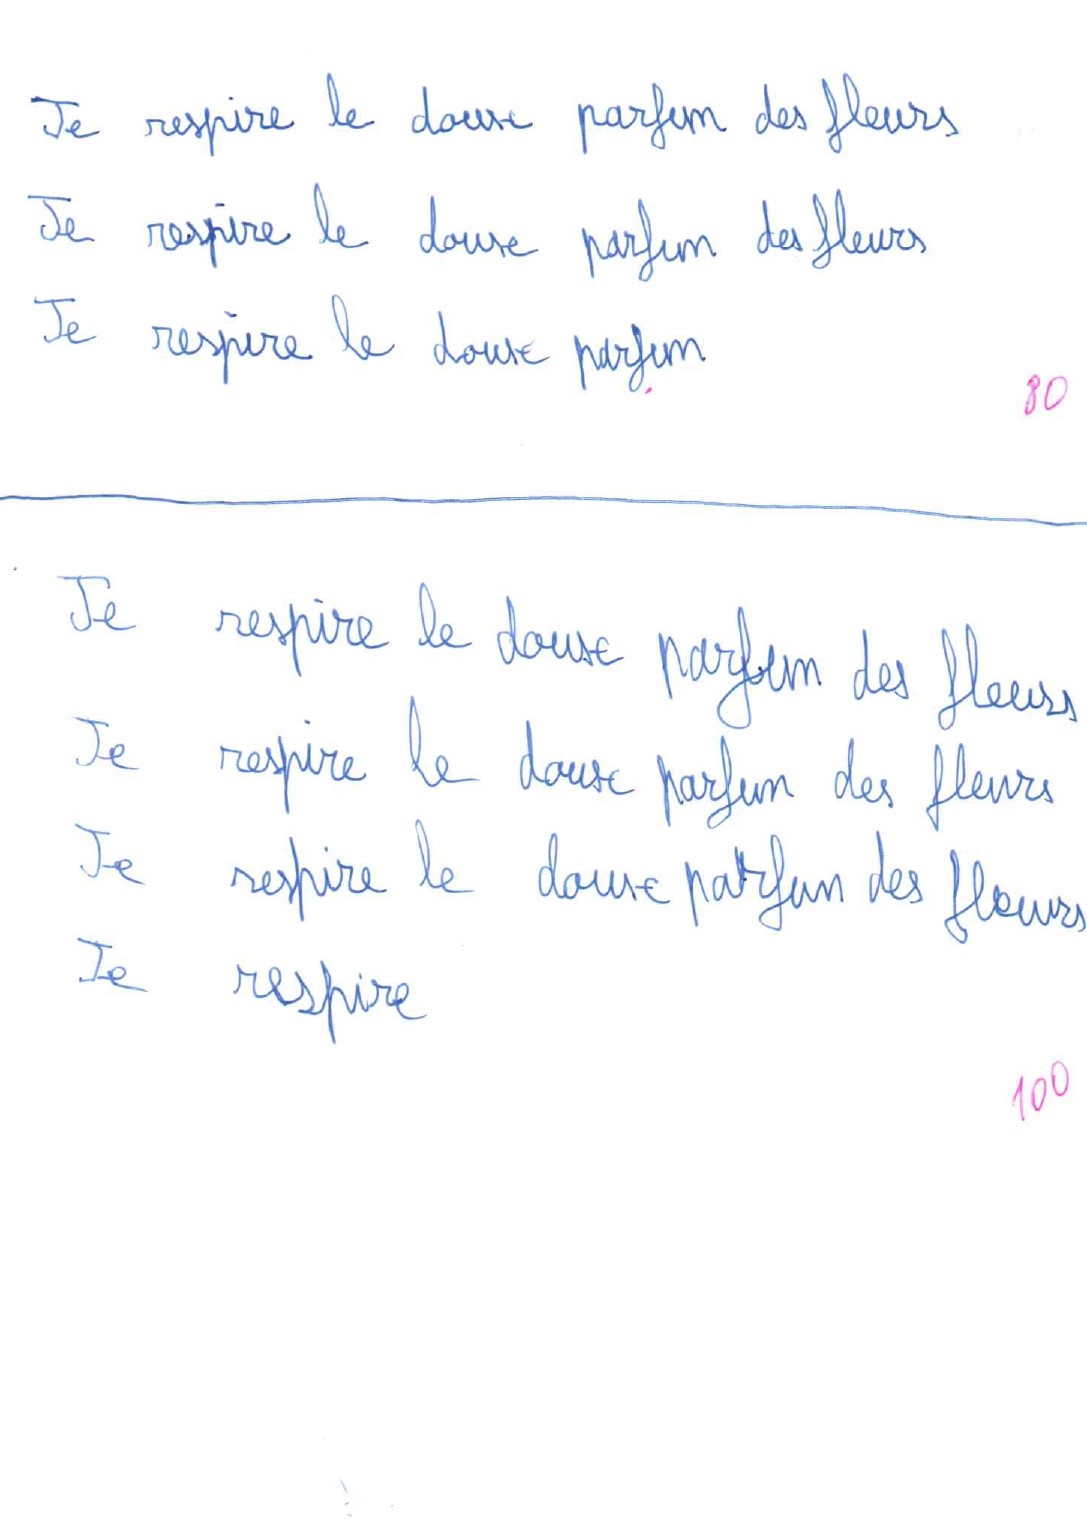 Je respire le doux parfum des fleurs
Je respire le doux parfum des fleurs
Je respire le doux parfum
80
Je respire le doux parfum des fleurs
Je respire le doux parfum des fleurs
Je respire le doux parfum des fleurs
Je respire
100